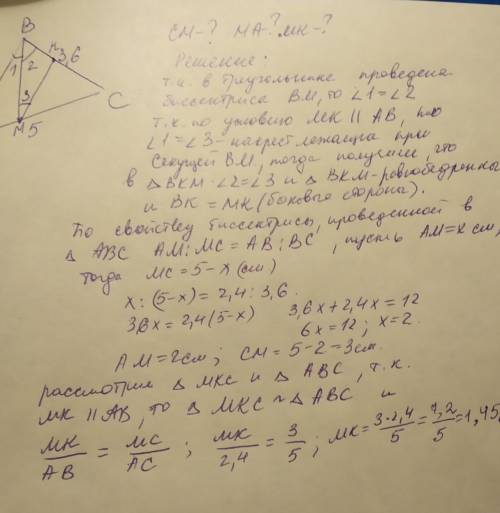 CM-? MA-? MK-?
B
Решение:
K
1 2
3,6
3
C
M 5
т.к. в треугольнике проведена
биссектриса BM, то ∠1=∠2
т.к. по условию MK || AB, то
∠1=∠3 - накрест лежащие при
секущей BM, тогда получили, что
в △BKM ∠2=∠3 и △BKM - равнобедренный
и BK = MK (боковые стороны).
По свойству биссектрисы, проведенной в
△ ABC AM:MC = AB:BC, пусть AM=x см,
тогда MC = 5-x (см)
x:(5-x) = 2,4:3,6.
3,6x = 2,4(5-x) 3,6x+2,4x = 12
6x = 12; x=2.
AM=2см; CM = 5-2=3см.
рассмотрим △ MKC и △ ABC, т.к.
MK || AB, то △ MKC ~ △ ABC и
MK/AB = MC/AC; MK/2,4 = 3/5; MK = 3·2,4/5 = 7,2/5 = 1,45